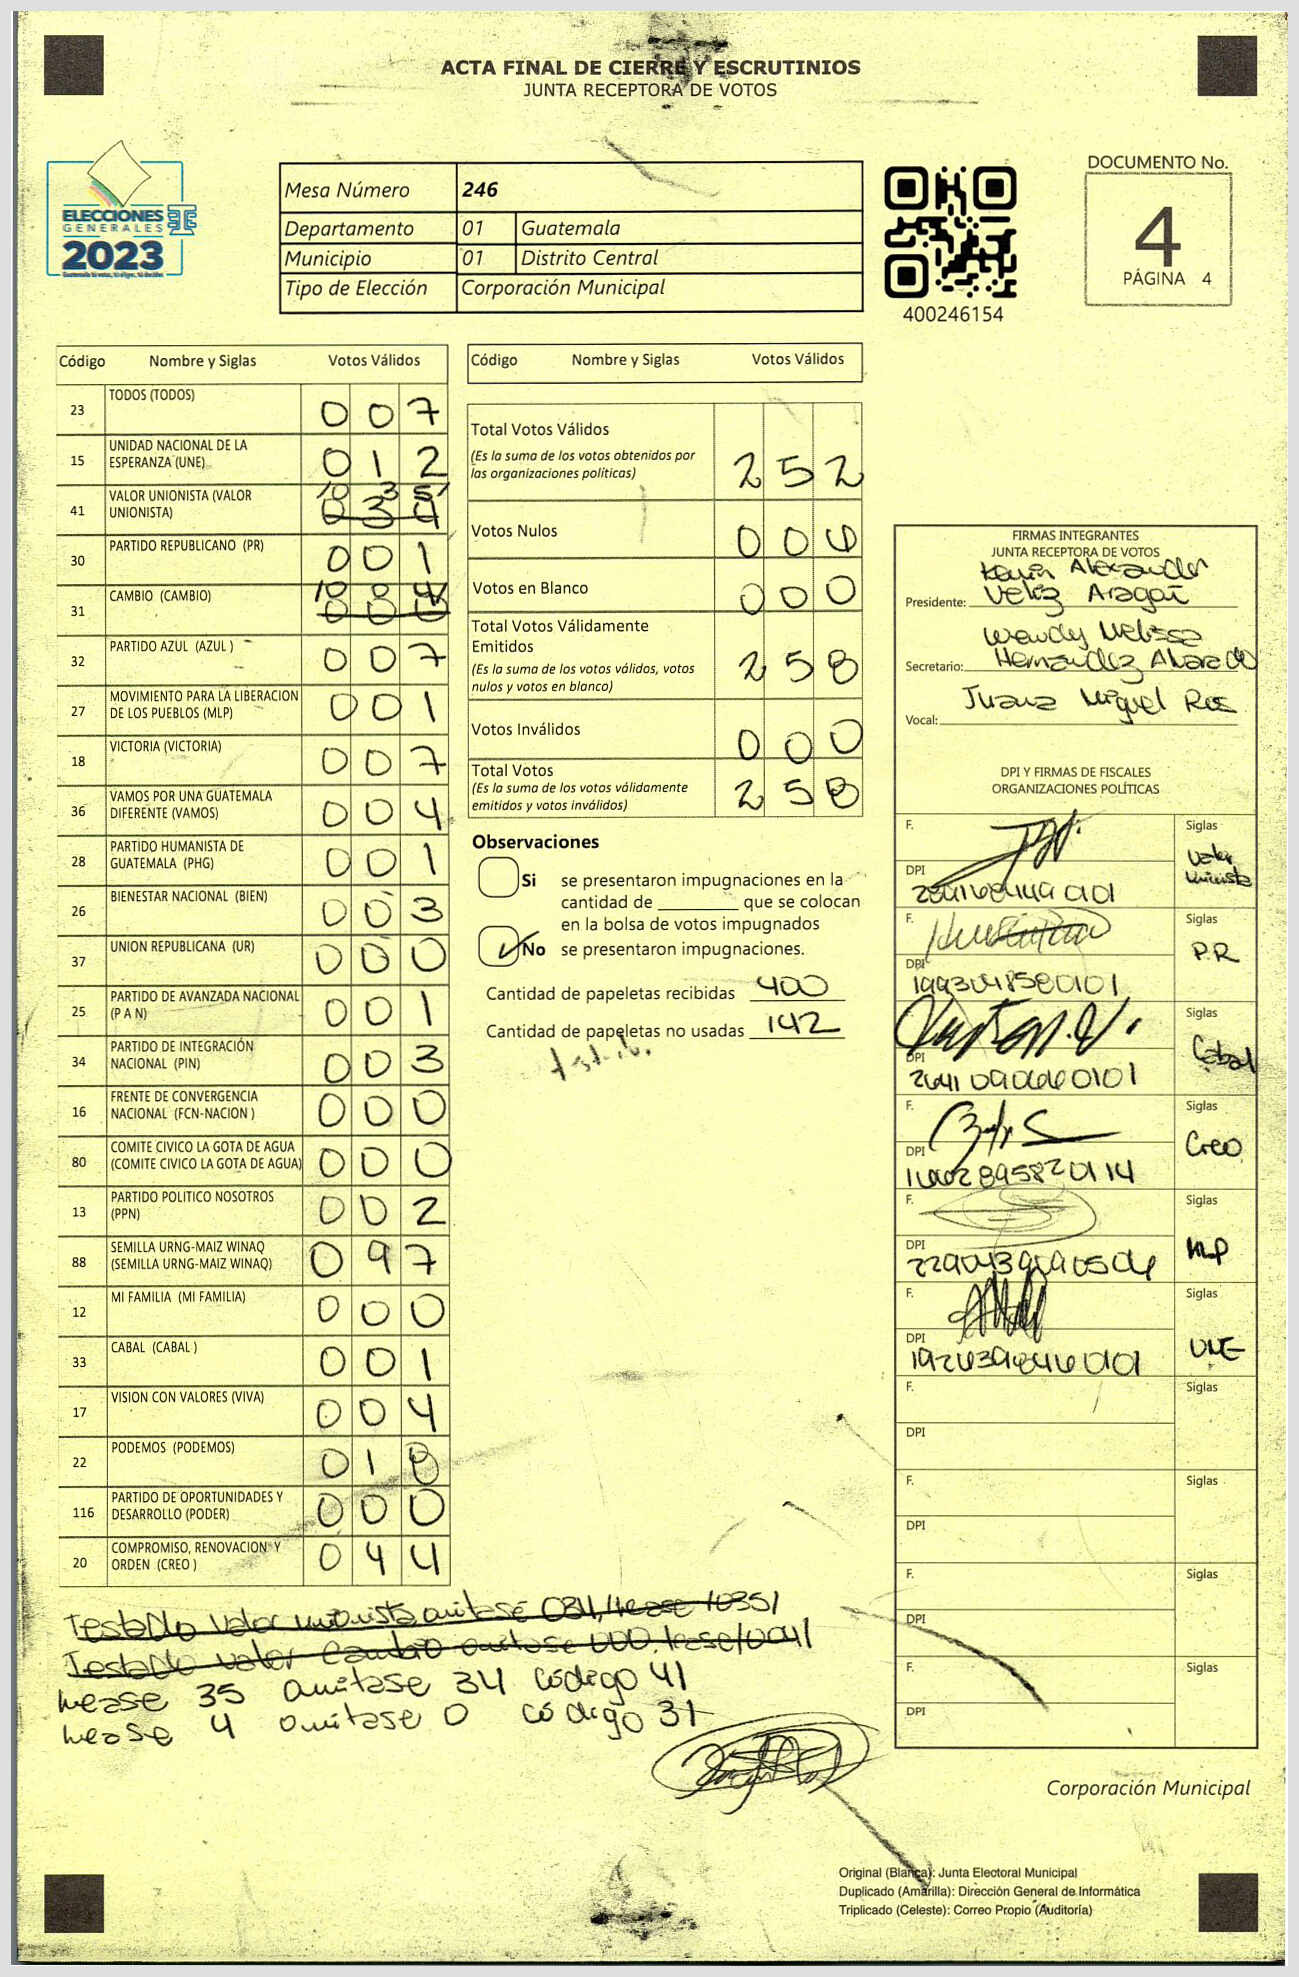 ACTA FINAL DE CIERRE Y ESCRUTINIOS
JUNTA RECEPTORA DE VOTOS
ELECCIONES
GENERALES
2023
Mesa Número 246
Departamento 01 Guatemala
Municipio 01 Distrito Central
Tipo de Elección Corporación Municipal
400246154
DOCUMENTO No.
4
PÁGINA 4
Código Nombre y Siglas Votos Válidos
23 TODOS (TODOS) 0 0 7
15 UNIDAD NACIONAL DE LA ESPERANZA (UNE) 0 1 2
41 VALOR UNIONISTA (VALOR UNIONISTA) /0 3 5/ 0 3 4
30 PARTIDO REPUBLICANO (PR) 0 0 1
31 CAMBIO (CAMBIO) /0 0 4/ 0 0 0
32 PARTIDO AZUL (AZUL ) 0 0 7
27 MOVIMIENTO PARA LA LIBERACION DE LOS PUEBLOS (MLP) 0 0 1
18 VICTORIA (VICTORIA) 0 0 7
36 VAMOS POR UNA GUATEMALA DIFERENTE (VAMOS) 0 0 4
28 PARTIDO HUMANISTA DE GUATEMALA (PHG) 0 0 1
26 BIENESTAR NACIONAL (BIEN) 0 0 3
37 UNION REPUBLICANA (UR) 0 0 0
25 PARTIDO DE AVANZADA NACIONAL (P A N) 0 0 1
34 PARTIDO DE INTEGRACIÓN NACIONAL (PIN) 0 0 3
16 FRENTE DE CONVERGENCIA NACIONAL (FCN-NACION ) 0 0 0
80 COMITE CIVICO LA GOTA DE AGUA (COMITE CIVICO LA GOTA DE AGUA) 0 0 0
13 PARTIDO POLITICO NOSOTROS (PPN) 0 0 2
88 SEMILLA URNG-MAIZ WINAQ (SEMILLA URNG-MAIZ WINAQ) 0 9 7
12 MI FAMILIA (MI FAMILIA) 0 0 0
33 CABAL (CABAL ) 0 0 1
17 VISION CON VALORES (VIVA) 0 0 4
22 PODEMOS (PODEMOS) 0 1 8
116 PARTIDO DE OPORTUNIDADES Y DESARROLLO (PODER) 0 0 0
20 COMPROMISO, RENOVACION Y ORDEN (CREO ) 0 4 4
Código Nombre y Siglas Votos Válidos
Total Votos Válidos
(Es la suma de los votos obtenidos por
las organizaciones políticas) 2 5 2
Votos Nulos 0 0 6
Votos en Blanco 0 0 0
Total Votos Válidamente
Emitidos
(Es la suma de los votos válidos, votos
nulos y votos en blanco) 2 5 8
Votos Inválidos 0 0 0
Total Votos
(Es la suma de los votos válidamente
emitidos y votos inválidos) 2 5 8
Observaciones
Si se presentaron impugnaciones en la
cantidad de ________ que se colocan
en la bolsa de votos impugnados
No se presentaron impugnaciones.
Cantidad de papeletas recibidas 400
Cantidad de papeletas no usadas 142
FIRMAS INTEGRANTES
JUNTA RECEPTORA DE VOTOS
Kevin Alexander
Presidente: Veliz Aragón
Wendy Melissa
Secretario: Hernandez Alvarado
Vocal: Juana Miguel
DPI Y FIRMAS DE FISCALES
ORGANIZACIONES POLÍTICAS
F. Siglas
DPI Valor Unionista
F. Siglas
DPI 1993048580101 P.R
F. Siglas
DPI 2641090660101 Cabal
F. Siglas
DPI Creo
F. Siglas
DPI MLP
F. Siglas
DPI UNE
F. Siglas
DPI
F. Siglas
DPI
F. Siglas
DPI
F. Siglas
DPI
Testado Valor unionista omitase 034, lease /035/
Testado Valor Cambio omitase 000, lease /004/
lease 35 omitase 34 código 41
lease 4 omitase 0 código 31
Corporación Municipal
Original (Blanca): Junta Electoral Municipal
Duplicado (Amarilla): Dirección General de Informática
Triplicado (Celeste): Correo Propio (Auditoría)